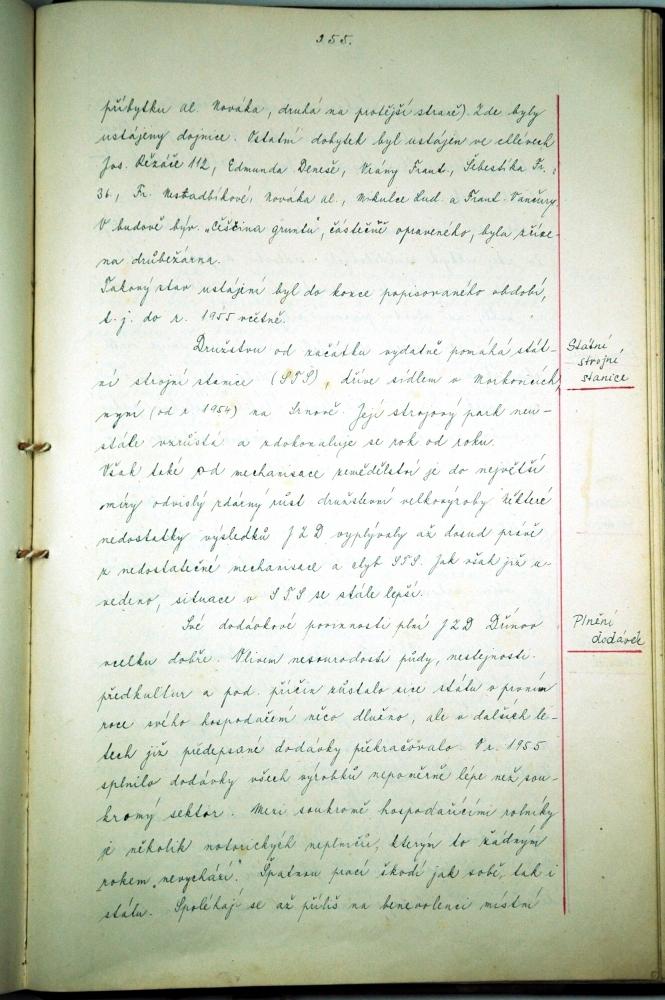 355.
příbytku al. Nováka, druhá na protější straně). Zde byly
ustájeny dojnice. Ostatní dobytek byl ustájen ve chlévech
Jos. Řezáče 112, Edmunda Deneše, Vrány Frant., Šebestíka Fr.
36, Fr. Nosadbíkové, Nováka al., Mikulce Lud. a Frant. Vančury.
V budově býv. „Čiščina gruntu", částečně opraveného, byla zříze-
na drůbežárna.
Takový stav ustájení byl do konce popisovaného období,
t. j. do r. 1955 včetně.
Družstvu od začátku vydatně pomáhá stát-
Státní
ní strojní stanice (STS), dříve sídlem v Morkovicích,
strojní
stanice
nyní (od r. 1954) na Srnově. Její strojový park neu-
stále vzrůstá a zdokonaluje se rok od roku.
Však také od mechanisace zemědělství je do největší
míry odvislý zdárný růst družstevní velkovýroby. Některé
nedostatky výsledků JZD vyplývaly až dosud právě
z nedostatečné mechanisace a chyb STS. Jak však již u-
vedeno, situace v STS se stále lepší.
Své dodávkové povinnosti plní JZD Dřínov
Plnění
dodávek
vcelku dobře. Vlivem nesourodosti půdy, nestejnosti
předkultur a pod. příčin zůstalo sice státu v prvním
roce svého hospodaření něco dlužno, ale v dalších le-
tech již předepsané dodávky překračovalo. V r. 1955
splnilo dodávky všech výrobků nepoměrně lépe než sou-
kromý sektor. Mezi soukromě hospodařícími rolníky
je několik notorických neplničů, kterým to žádným
rokem „nevychází". Špatnou prací škodí jak sobě, tak i
státu. Spoléhají se až příliš na benevolenci místní